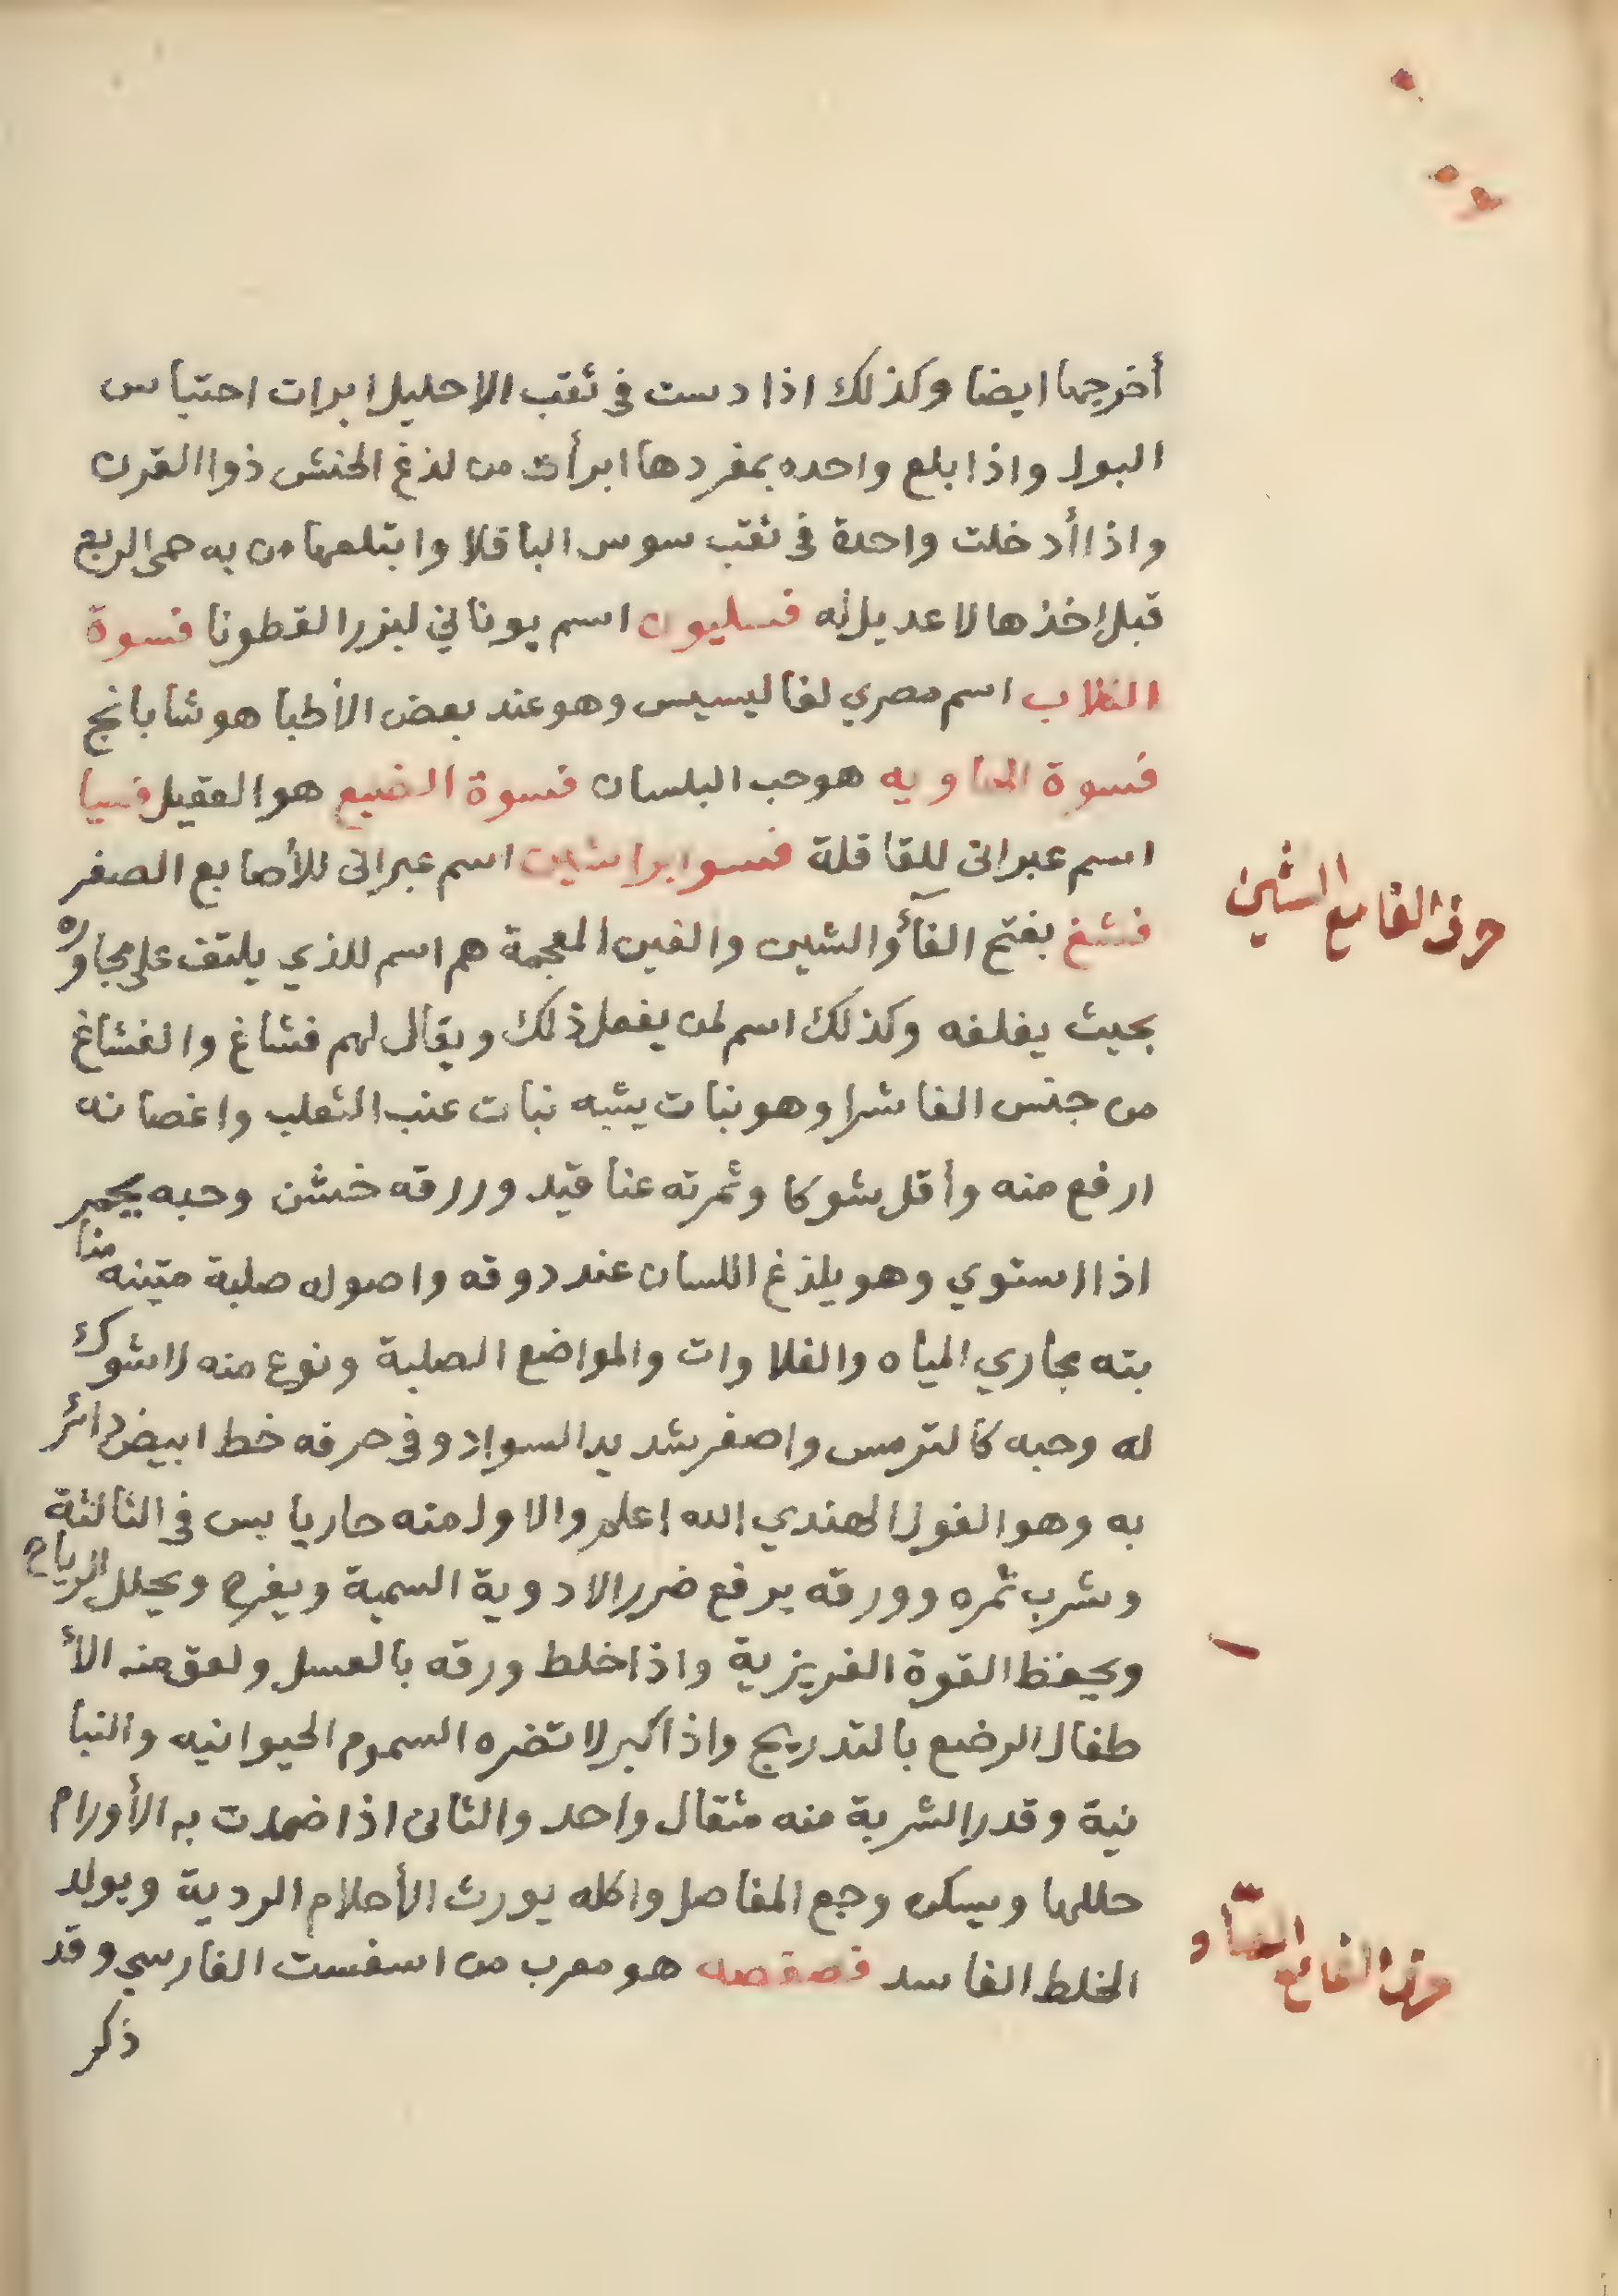 أخرجها ايضا وكذلك اذا دست في ثقب الاحليل ابرات احتباس
البول واذا بلع واحده بمفردها ابرأت من لذغ الحنش ذوا القرن
واذا أدخلت واحدة في ثقب سوس الباقلا وابتلعها من به حمى الربع
قبل اخذها لا عديل له فسليون اسم يوناني لبزر القطونا فسوة
الكلاب اسم مصري لغاليسيس وهو عند بعض الأطبا هو شابانج
فسوة هو حب البلسان فسوة الضبع هو العقيل فسيا
اسم عبراني للقاقلة اسم عبراني للأصابع الصفر
فشغ بفتح الفأ والشين والغين المعجمة هم اسم للذي يلتف على مجاوره
بحيث يغلفه وكذلك اسم لمن يفعل ذلك ويقال لهم فشاغ والفشاغ
من جنس الفاشرا وهو نبات يشبه نبات عنب الثعلب واغصانه
ارفع منه وأقل شوكا وثمرته عناقيد وورقه خشن وحبه يحمر
اذا استوي وهو يلذغ اللسان عند دوقه واصوله صلبة متينه منا
بته مجاري المياه والفلاوات والمواضع الصلبة ونوع منه لا شوك
له وحبه كالترمس واصغر شديد السواد وفي حرفه خط ابيض دائر
به وهو الفول الهندي الله اعلم والاول منه حار يابس في الثالثة
وشرب ثمره وورقه يرفع ضرر الادوية السمية ويفرح ويحلل الرياح
ويحفظ القوة الغريزية واذا خلط ورقه بالعسل ولعق منه الأ
طفال الرضع بالتدريج واذا كبر لا تضره السموم الحيوانيه والنبا
نية وقدر الشربة منه مثقال واحد والثانى اذا ضمدت به الأورام
حللها ويسكن وجع المفاصل واكله يورث الأحلام الردية ويولد
الخلط الفاسد فصفصه هو معرب من اسفست الفارسي وقد
ذكر
حرف الفا مع الشين
حرف الفا مع الصاد